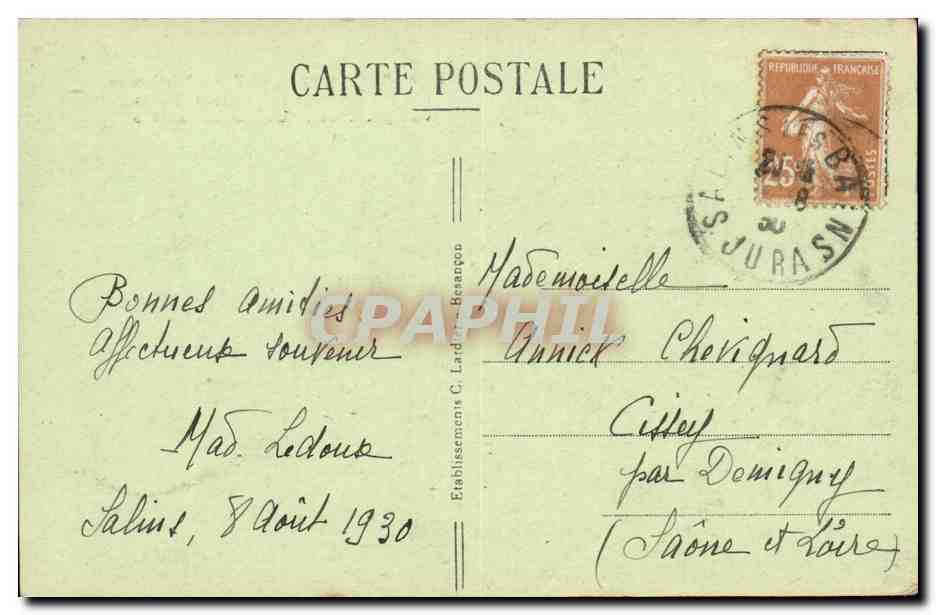 CARTE POSTALE
REPUBLIQUE FRANÇAISE
25
POSTES
LES BAINS
JURA
8
30
Bonnes amitiés
Affectueux souvenir
Mad. Ledoux
Salins, 8 Août 1930
Etablissements C. Lardier - Besançon
Mademoiselle
Annick Chevignard
Cissey
par Demigny
(Saône et Loire)
CPAPHIL